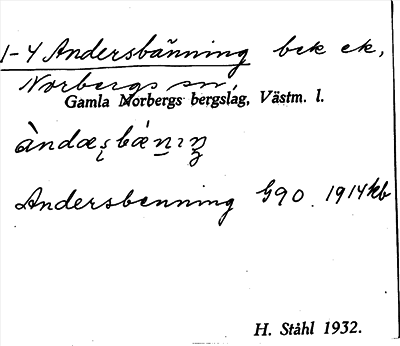 1-4 Andersbänning bck ck,
Norbergs sn,
Gamla Norbergs bergslag, Västm. l.
àndæʂbǽnıŋ
Andersbenning G90. 1914 kb
H. Ståhl 1932.